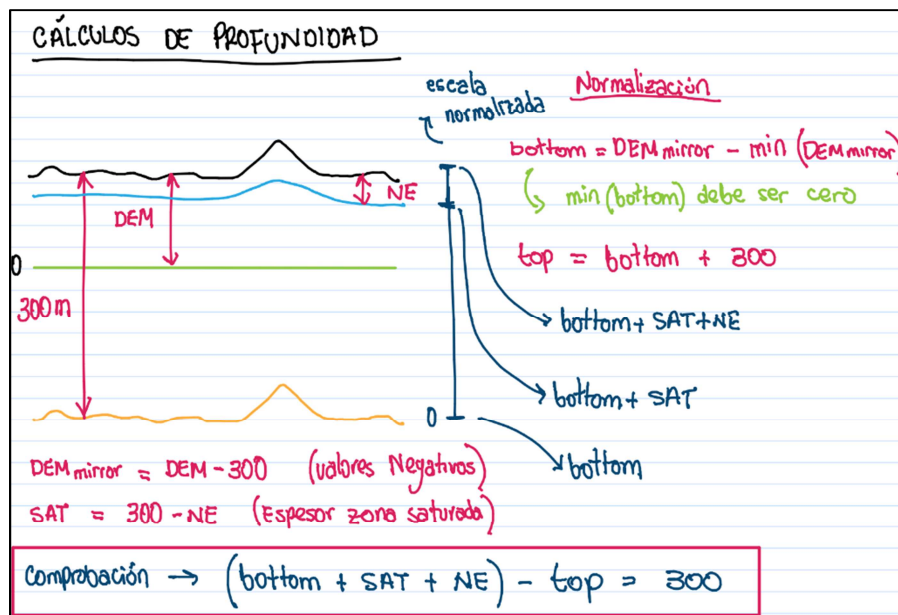 CÁLCULOS DE PROFUNDIDAD
escala
normalizada
Normalización
bottom = DEM mirror - min (DEM mirror)
min (bottom) debe ser cero
NE
DEM
top = bottom + 300
0
300m
bottom + SAT + NE
bottom + SAT
0
bottom
DEM mirror = DEM - 300 (valores Negativos)
SAT = 300 - NE (Espesor zona saturada)
comprobación → (bottom + SAT + NE) - top = 300